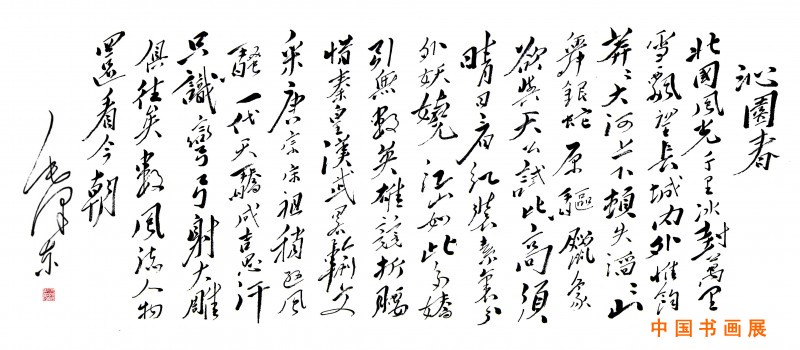 沁園春
北國風光千里冰封萬里
雪飄望長城内外惟餘
莽〻大河上下頓失滔〻山
舞銀蛇原驅臘象
欲與天公試比高須
晴日看紅裝素裹分
外妖嬈江山如此多嬌
引無數英雄競折腰
惜秦皇漢武畧輸文
采唐宗宋祖稍遜風
騷一代天驕成吉思汗
只識彎弓射大雕
俱往矣數風流人物
還看今朝
毛澤东
中国书画展